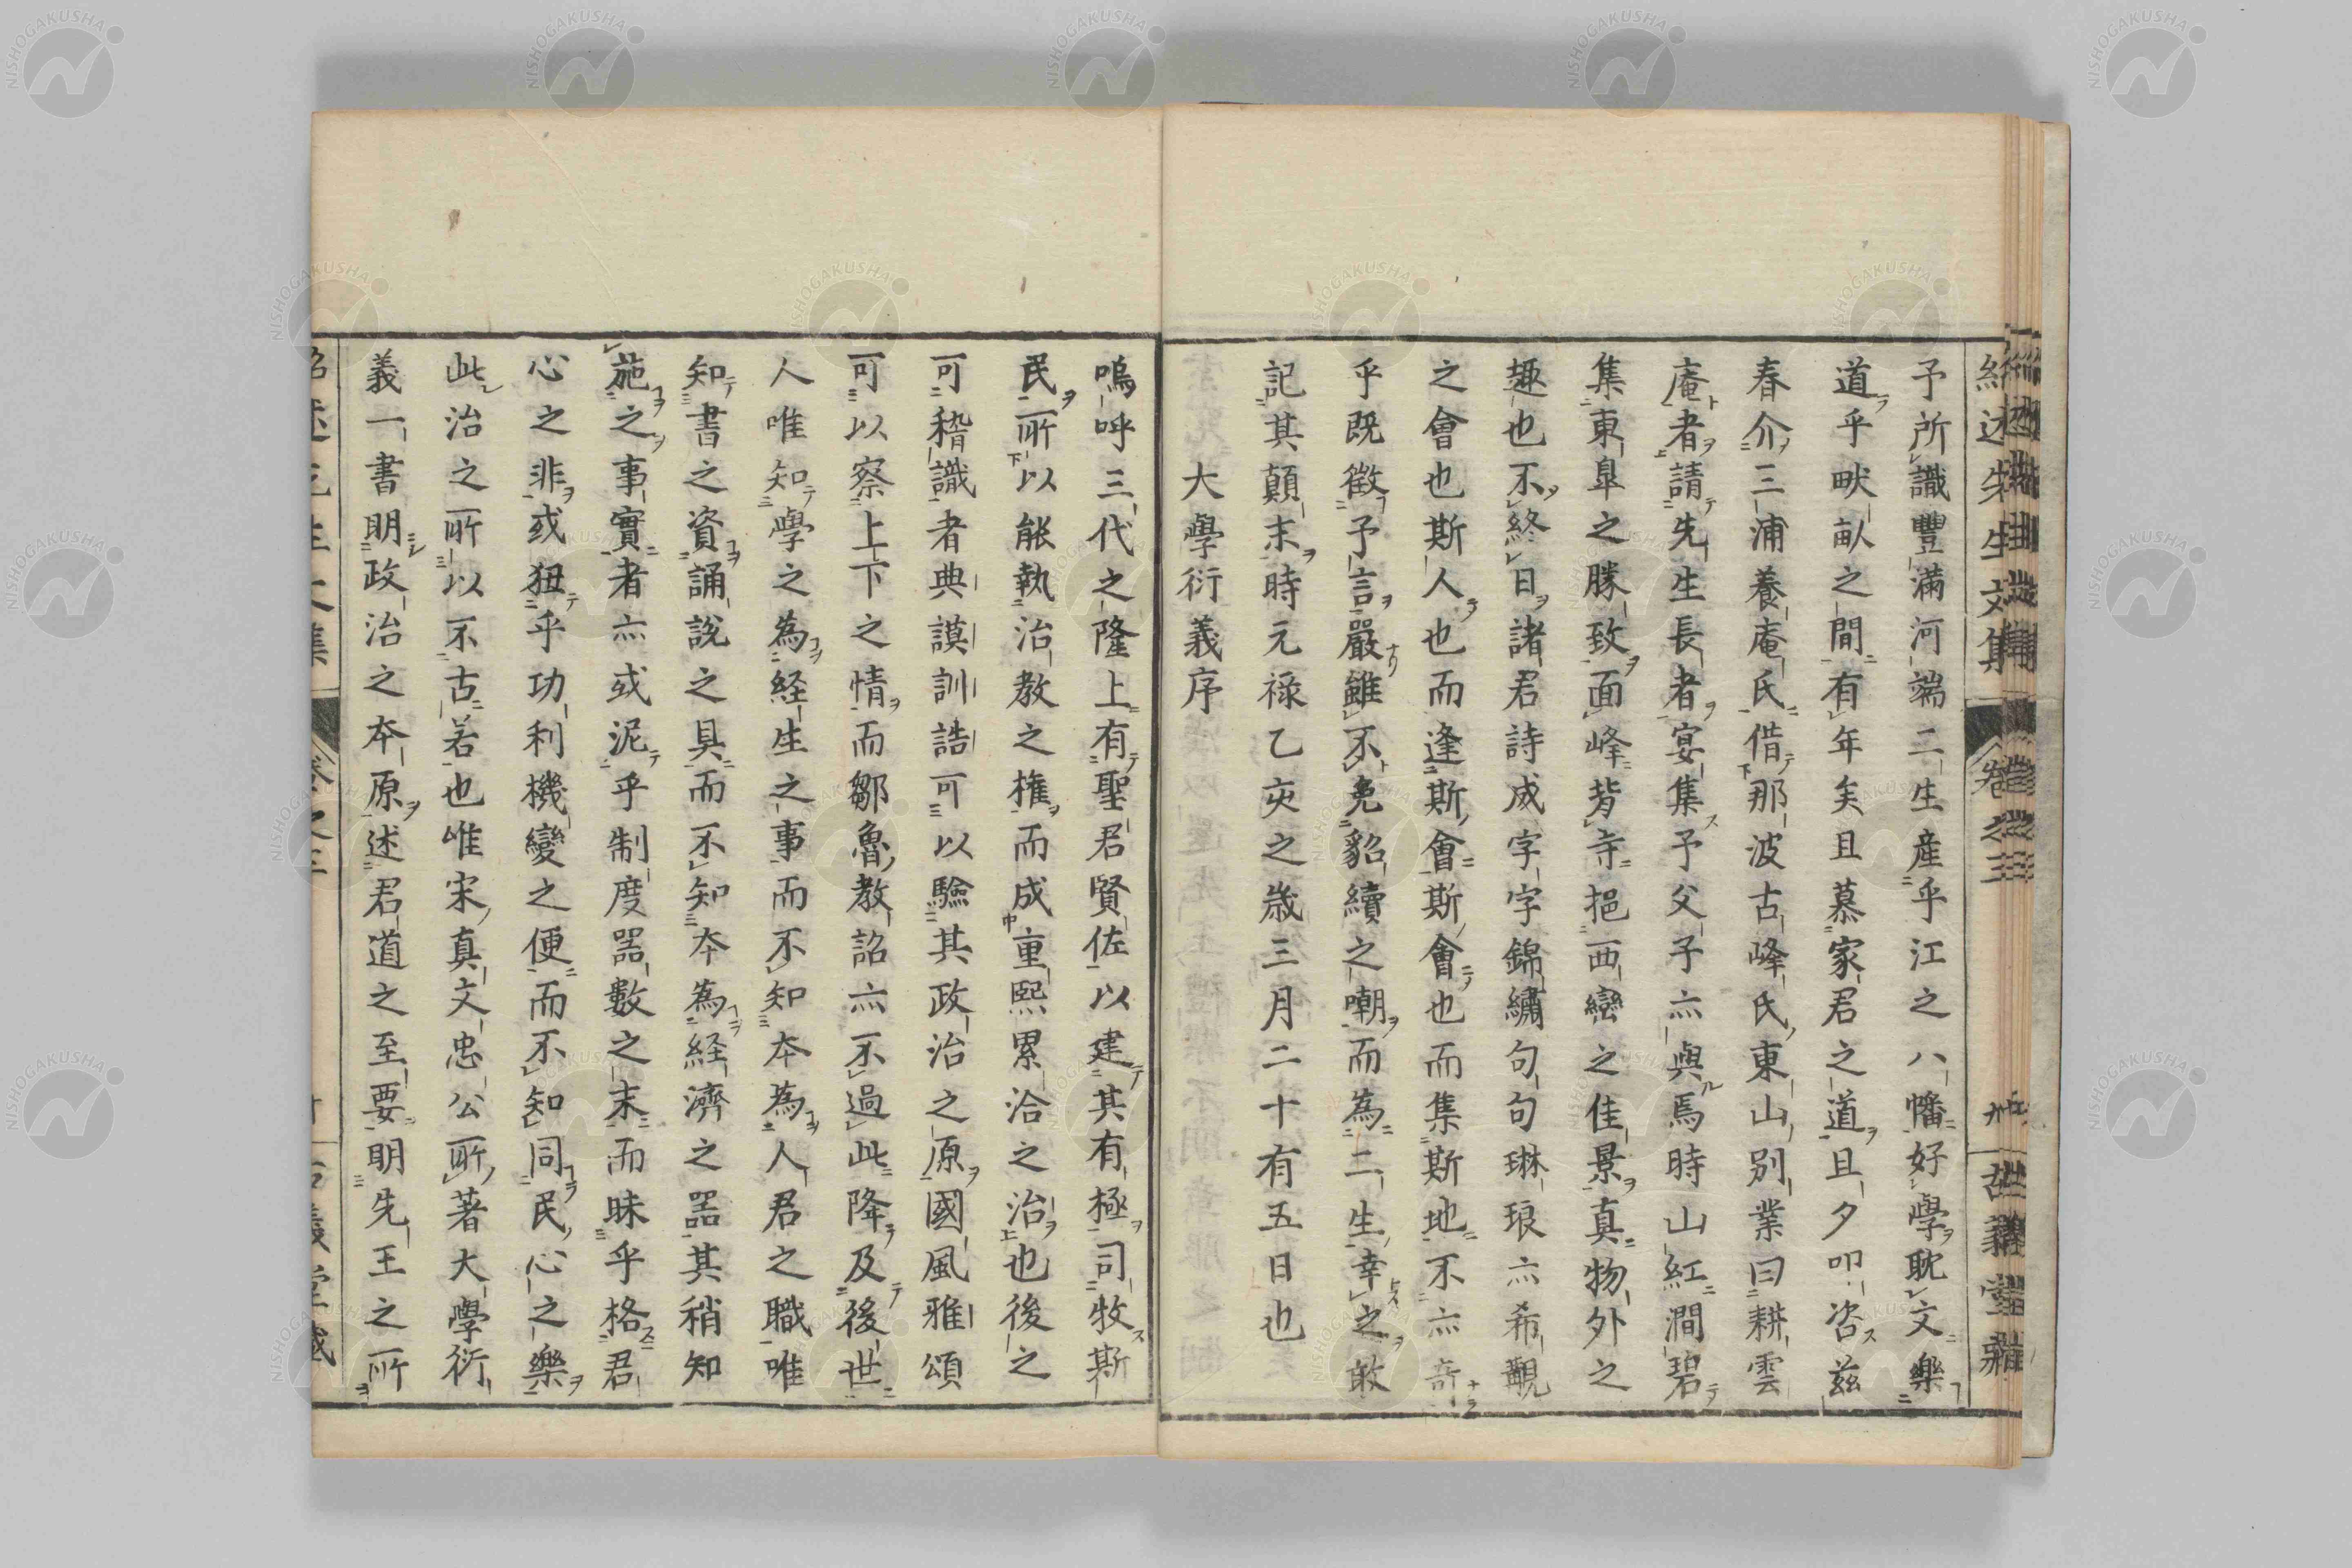 予所識豐滿河端二生産乎江之八幡好學耽文樂
道乎畎畝之間有年矣且慕家君之道旦夕叩咨兹
春介三浦養庵氏借那波古峰氏東山別業曰耕雲
庵者請先生長者宴集予父子亦與焉時山紅澗碧
集東皐之勝致面峰背寺挹西巒之佳景真物外之
趣也不終日諸君詩成字字錦繡句句琳琅亦希覯
之會也斯人也而逢斯會斯會也而集斯地不亦奇
乎既徵予言嚴雖不免貂續之嘲而為二生幸之敢
記其顛末時元祿乙亥之歲三月二十有五日也
大學衍義序
嗚呼三代之隆上有聖君賢佐以建其有極司牧斯
民所以能執治教之權而成重熙累洽之治也後之
可稽識者典謨訓誥可以驗其政治之原國風雅頌
可以察上下之情而鄒魯教詔亦不過此降及後世
人唯知學之為経生之事而不知本為人君之職唯
知書之資誦說之具而不知本為経濟之器其稍知
施之事實者亦或泥乎制度器數之末而昧乎格君
心之非或狃乎功利機變之便而不知同民心之樂
此治之所以不古若也唯宋真文忠公所著大學衍
義一書明政治之本原述君道之至要明先王之所